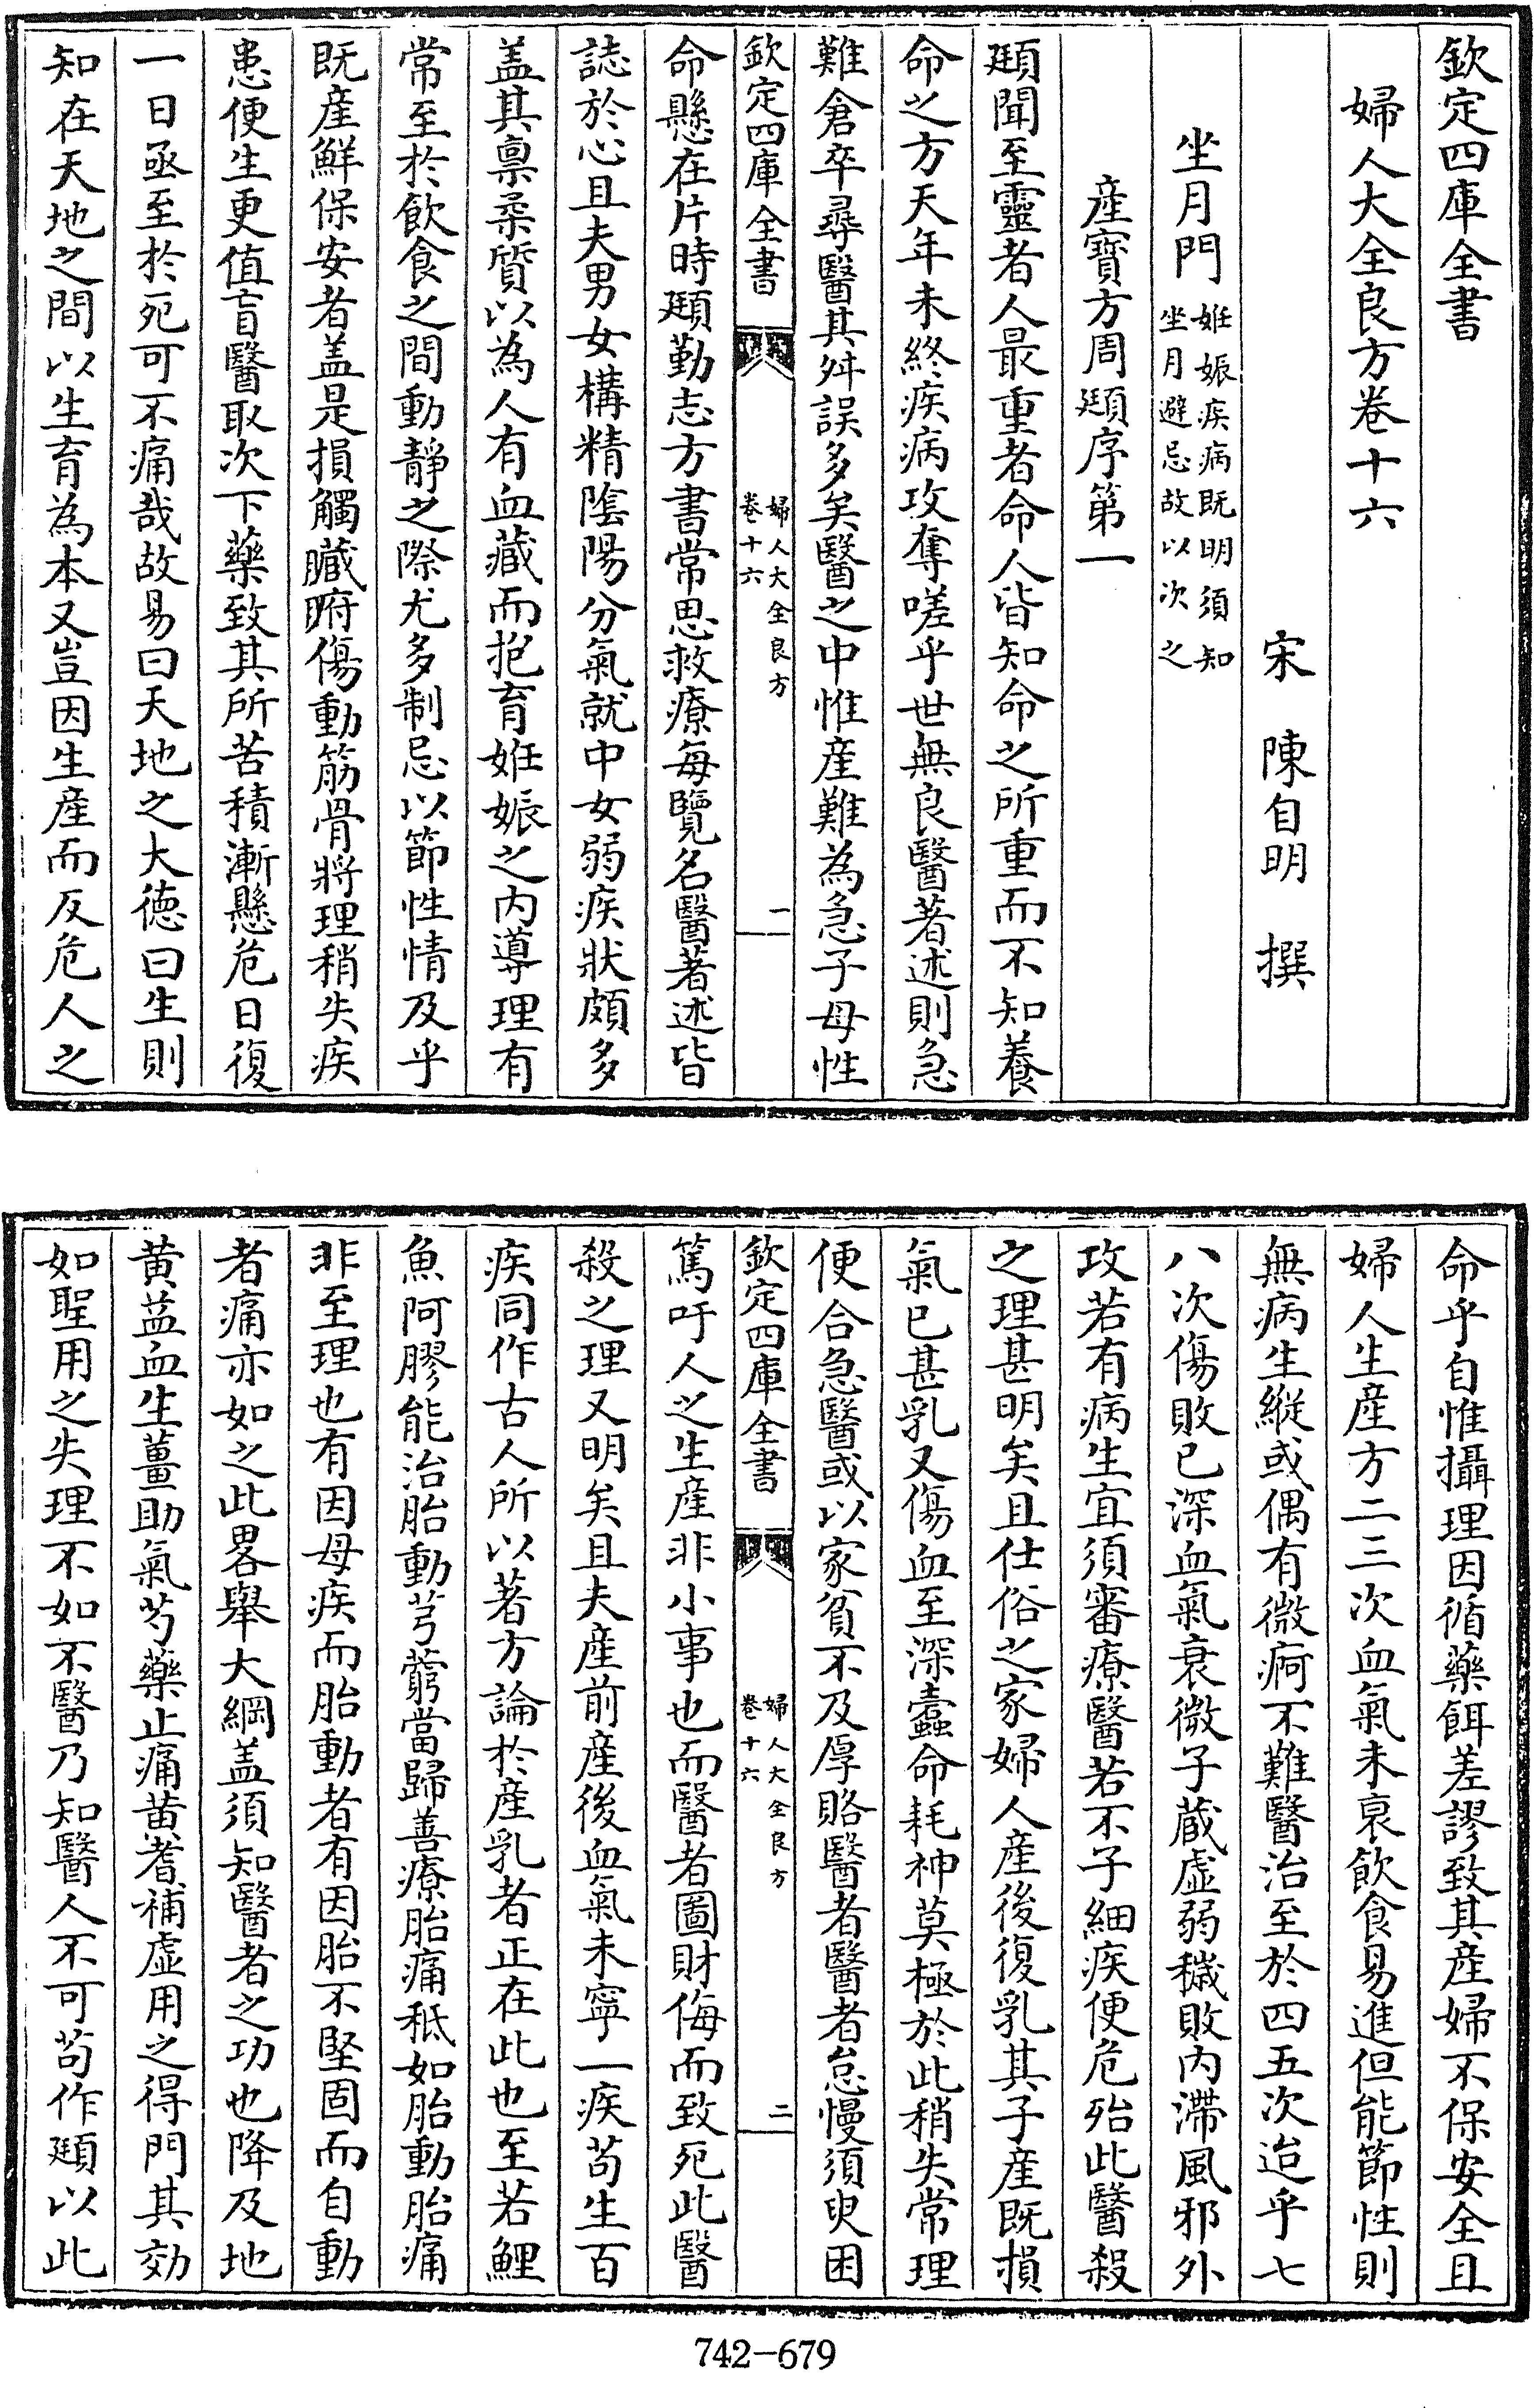 欽定四庫全書
婦人大全良方卷十六
宋 陳自明 撰
坐月門 姙娠疾病既明須知
坐月避忌故以次之
産寶方周頲序第一
頲聞至靈者人最重者命人皆知命之所重而不知養
命之方天年未終疾病攻奪嗟乎世無良醫著述則急
難倉卒尋醫其舛誤多矣醫之中惟産難為急子母性
欽定四庫全書 婦人大全良方
卷十六 一
命懸在片時頲勤志方書常思救療每覽名醫著述皆
誌於心且夫男女構精陰陽分氣就中女弱疾狀頗多
盖其禀柔質以為人有血藏而抱育姙娠之内導理有
常至於飲食之間動靜之際尤多制忌以節性情及乎
既産鮮保安者盖是損觸臟腑傷動筋骨將理稍失疾
患便生更值盲醫取次下藥致其所苦積漸懸危日復
一日亟至於死可不痛哉故易曰天地之大徳曰生則
知在天地之間以生育為本又豈因生産而反危人之
命乎自惟攝理因循藥餌差謬致其産婦不保安全且
婦人生産方二三次血氣未衰飲食易進但能節性則
無病生縱或偶有微疴不難醫治至於四五次迨乎七
八次傷敗已深血氣衰微子蔵虛弱穢敗内滯風邪外
攻若有病生宜須審療醫若不子細疾便危殆此醫殺
之理甚明矣且仕俗之家婦人産後復乳其子産既損
氣已甚乳又傷血至深蠹命耗神莫極於此稍失常理
便合急醫或以家貧不及厚賂醫者醫者怠慢須臾困
欽定四庫全書 婦人大全良方
卷十六 二
篤吁人之生産非小事也而醫者圖財侮而致死此醫
殺之理又明矣且夫産前産後血氣未寧一疾茍生百
疾同作古人所以著方論於産乳者正在此也至若鯉
魚阿膠能治胎動芎藭當歸善療胎痛秪如胎動胎痛
非至理也有因母疾而胎動者有因胎不堅固而自動
者痛亦如之此畧舉大綱盖須知醫者之功也降及地
黄蓝血生薑助氣芍藥止痛黄耆補虛用之得門其効
如聖用之失理不如不醫乃知醫人不可茍作頲以此
742-679